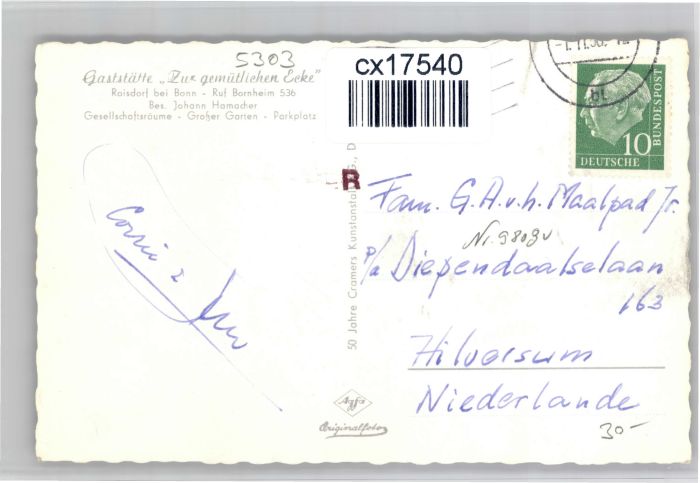 5303
Gaststätte „Zur gemütlichen Ecke"
Roisdorf bei Bonn - Ruf Bornheim 536
Bes. Johann Hamacher
Gesellschaftsräume - Großer Garten - Parkplatz
cx17540
bl
10
DEUTSCHE
BUNDESPOST
R
50 Jahre Cramers Kunstanstalt
Fam. G.A.v.h. Maalpad Jr.
p/a Diependaalselaan
163
Hilversum
Niederlande
30-
Agfa
Originalfoto